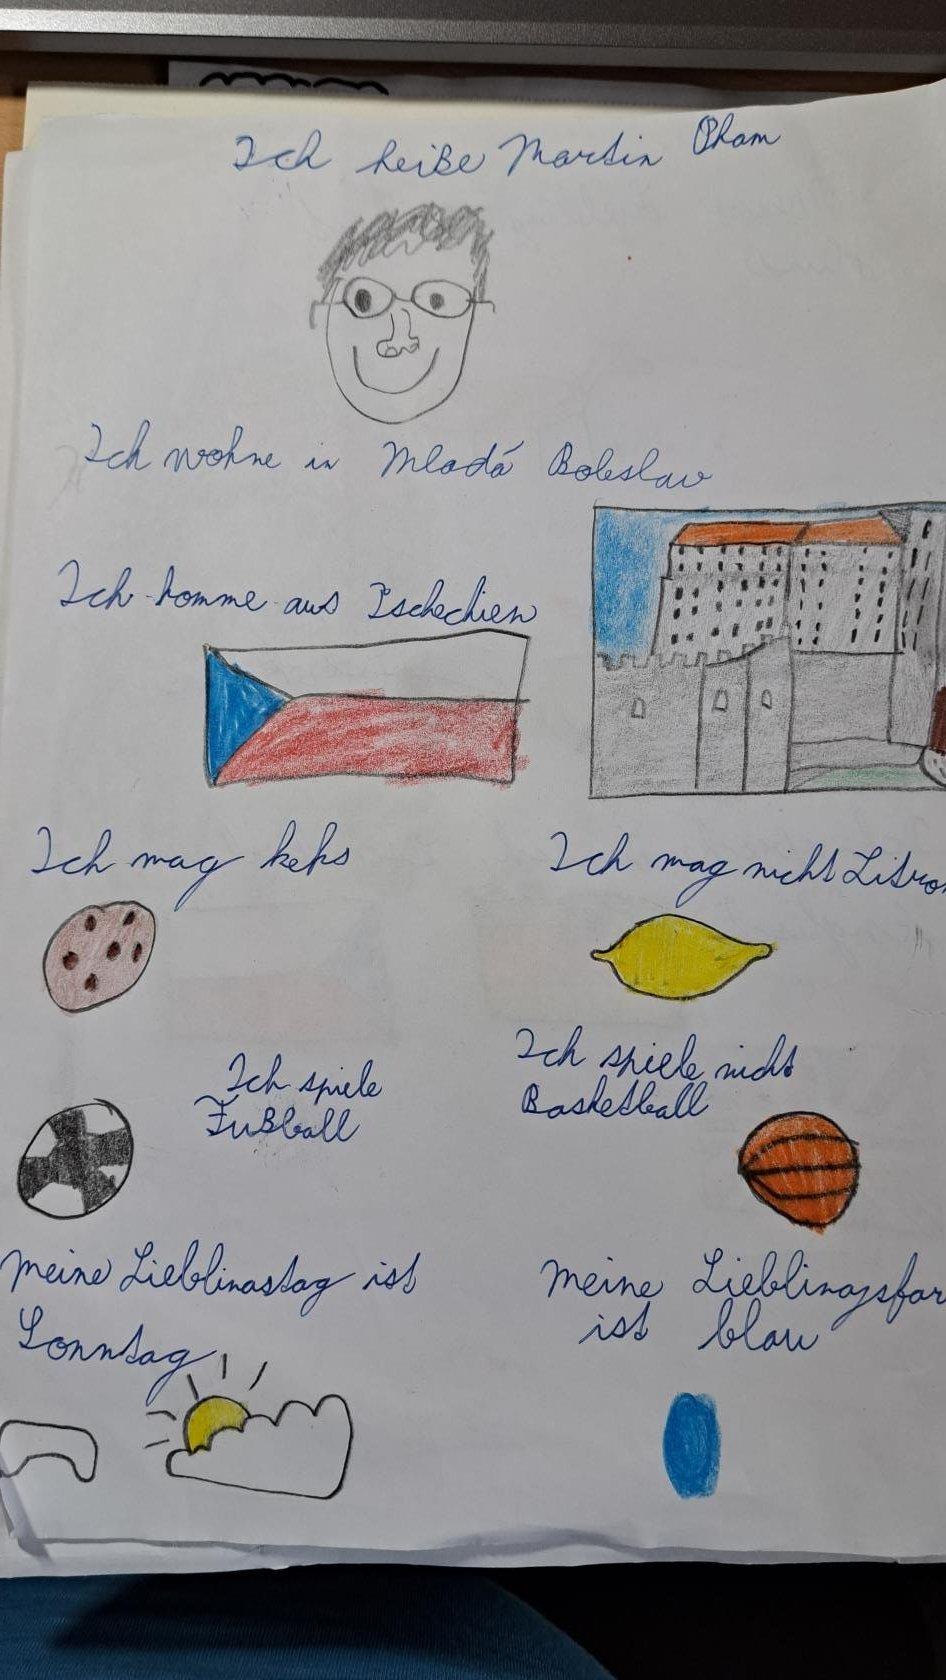 Ich heiße Martin Pham
Ich wohne in Mladá Boleslav
Ich komme aus Tschechien
Ich mag keks
Ich mag nicht
Ich spiele
Fußball
Ich spiele nicht
Basketball
Meine Lieblinastag ist
Sonntag
Meine
ist blau